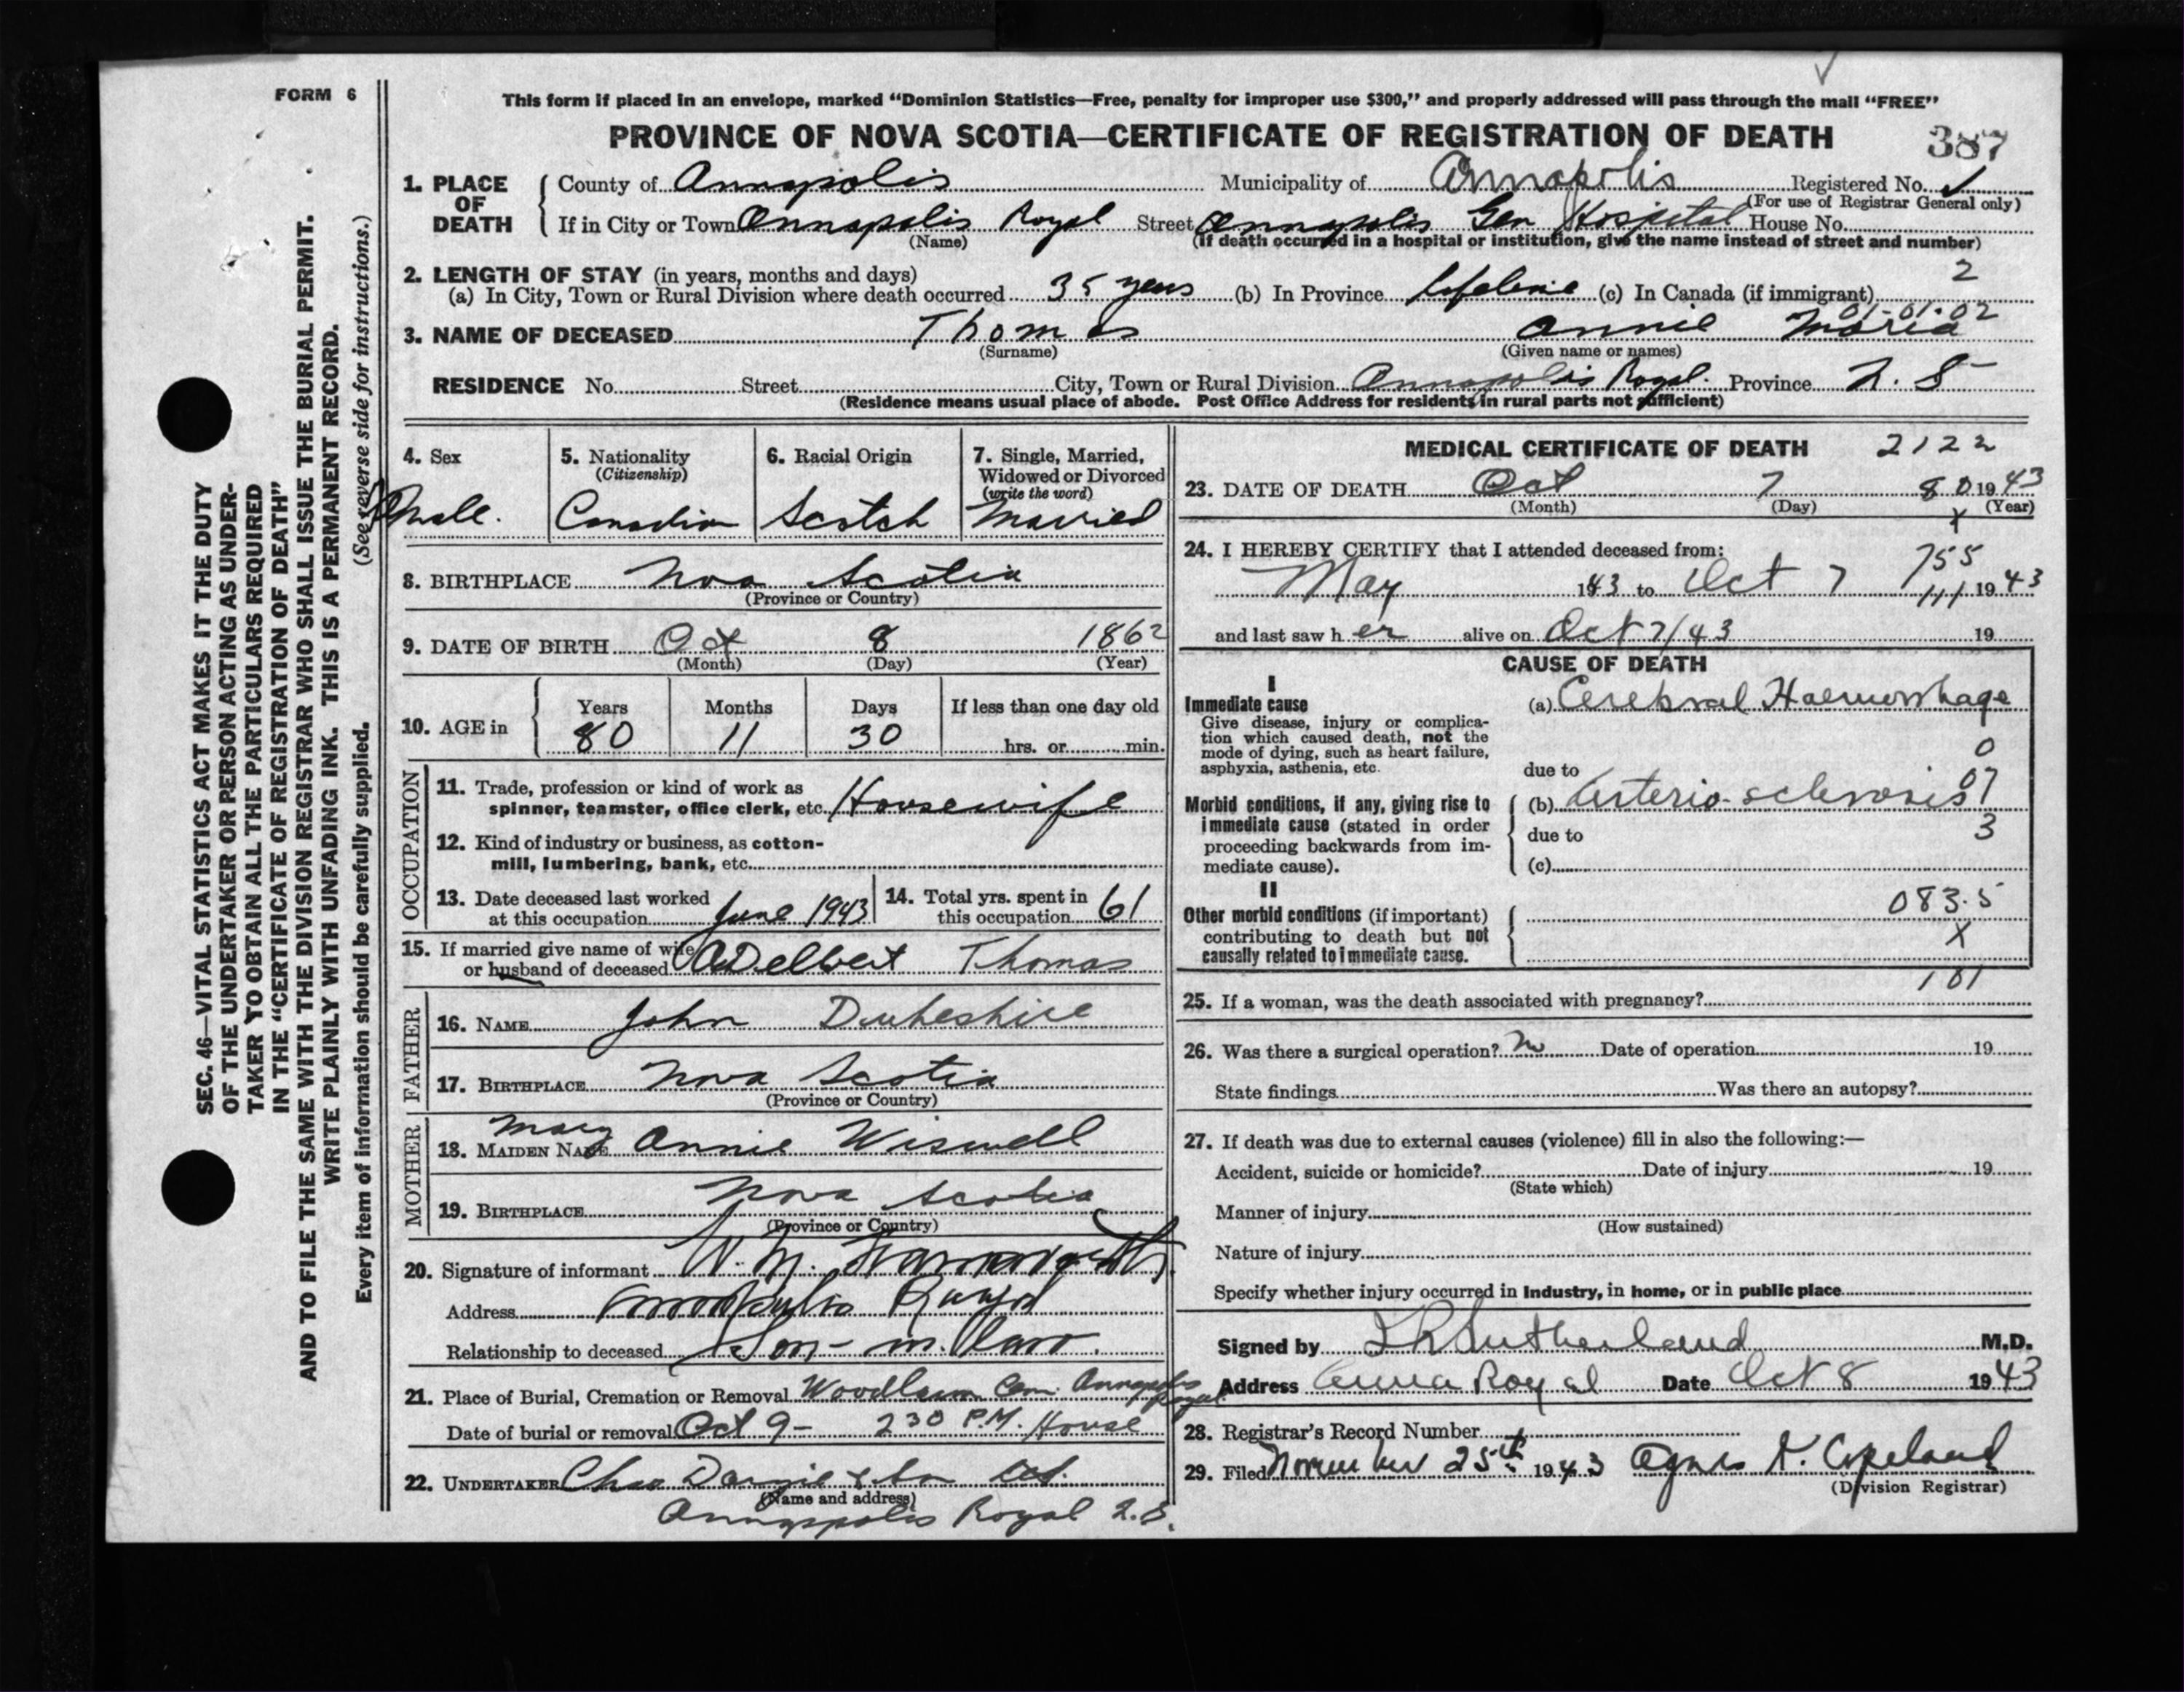 FORM 6
This form if placed in an envelope, marked “Dominion Statistics—Free, penalty for improper use $300,” and properly addressed will pass through the mail “FREE”
PROVINCE OF NOVA SCOTIA—CERTIFICATE OF REGISTRATION OF DEATH 387
1. PLACE OF DEATH County of Annapolis Municipality of Annapolis Registered No. ✓
(For use of Registrar General only)
If in City or Town Annapolis Royal Street Annapolis Gen Hospital House No.
(Name) (If death occurred in a hospital or institution, give the name instead of street and number)
2. LENGTH OF STAY (in years, months and days) 2
(a) In City, Town or Rural Division where death occurred 35 years (b) In Province Lifetime (c) In Canada (if immigrant)
01-01-02
3. NAME OF DECEASED Thomas Annie Maria
(Surname) (Given name or names)
RESIDENCE No. Street City, Town or Rural Division Annapolis Royal. Province N. S
(Residence means usual place of abode. Post Office Address for residents in rural parts not sufficient)
4. Sex 5. Nationality (Citizenship) 6. Racial Origin 7. Single, Married, Widowed or Divorced (write the word)
male. Canadian Scotch Married
8. BIRTHPLACE Nova Scotia
(Province or Country)
9. DATE OF BIRTH Oct 8 1862
(Month) (Day) (Year)
10. AGE in Years Months Days If less than one day old
80 11 30 hrs. or min.
OCCUPATION
11. Trade, profession or kind of work as
spinner, teamster, office clerk, etc. Housewife
12. Kind of industry or business, as cotton-
mill, lumbering, bank, etc.
13. Date deceased last worked at this occupation June 1943 14. Total yrs. spent in this occupation 61
15. If married give name of wife
or husband of deceased Adelbert Thomas
FATHER
16. NAME John
17. BIRTHPLACE Nova Scotia
(Province or Country)
MOTHER
18. MAIDEN NAME Mary Annie Wiswell
19. BIRTHPLACE Nova Scotia
(Province or Country)
20. Signature of informant W. M.
Address Annapolis Royal
Relationship to deceased Son-in-law.
21. Place of Burial, Cremation or Removal Woodlawn Cem. Annapolis Royal
Date of burial or removal Oct 9- 2 30 P.M. House
22. UNDERTAKER Chas Dargie & Son Ltd.
(Name and address)
Annapolis Royal N.S.
MEDICAL CERTIFICATE OF DEATH 2122
23. DATE OF DEATH Oct 7 80 1943
(Month) (Day) (Year)
X
24. I HEREBY CERTIFY that I attended deceased from: 755
May 1943 to Oct 7 111 1943
and last saw her alive on Oct 7/43 19
CAUSE OF DEATH
I
Immediate cause (a) Cerebral Haemorrhage
Give disease, injury or complica-
tion which caused death, not the
mode of dying, such as heart failure,
asphyxia, asthenia, etc.
0
due to
07
Morbid conditions, if any, giving rise to (b) Arterio-sclerosis
immediate cause (stated in order
proceeding backwards from im-
mediate cause).
due to 3
(c)
II
Other morbid conditions (if important) 083.5
contributing to death but not X
causally related to immediate cause.
101
25. If a woman, was the death associated with pregnancy?
26. Was there a surgical operation? No Date of operation 19
State findings Was there an autopsy?
27. If death was due to external causes (violence) fill in also the following:—
Accident, suicide or homicide? Date of injury 19
(State which)
Manner of injury
(How sustained)
Nature of injury
Specify whether injury occurred in industry, in home, or in public place
Signed by Sutherland M.D.
Address Anna Royal Date Oct 8 1943
28. Registrar's Record Number
29. Filed November 25th 1943 Agnes Copeland
(Division Registrar)
SEC. 46—VITAL STATISTICS ACT MAKES IT THE DUTY
OF THE UNDERTAKER OR PERSON ACTING AS UNDER-
TAKER TO OBTAIN ALL THE PARTICULARS REQUIRED
IN THE “CERTIFICATE OF REGISTRATION OF DEATH”
AND TO FILE THE SAME WITH THE DIVISION REGISTRAR WHO SHALL ISSUE THE BURIAL PERMIT.
WRITE PLAINLY WITH UNFADING INK. THIS IS A PERMANENT RECORD.
Every item of information should be carefully supplied. (See reverse side for instructions.)